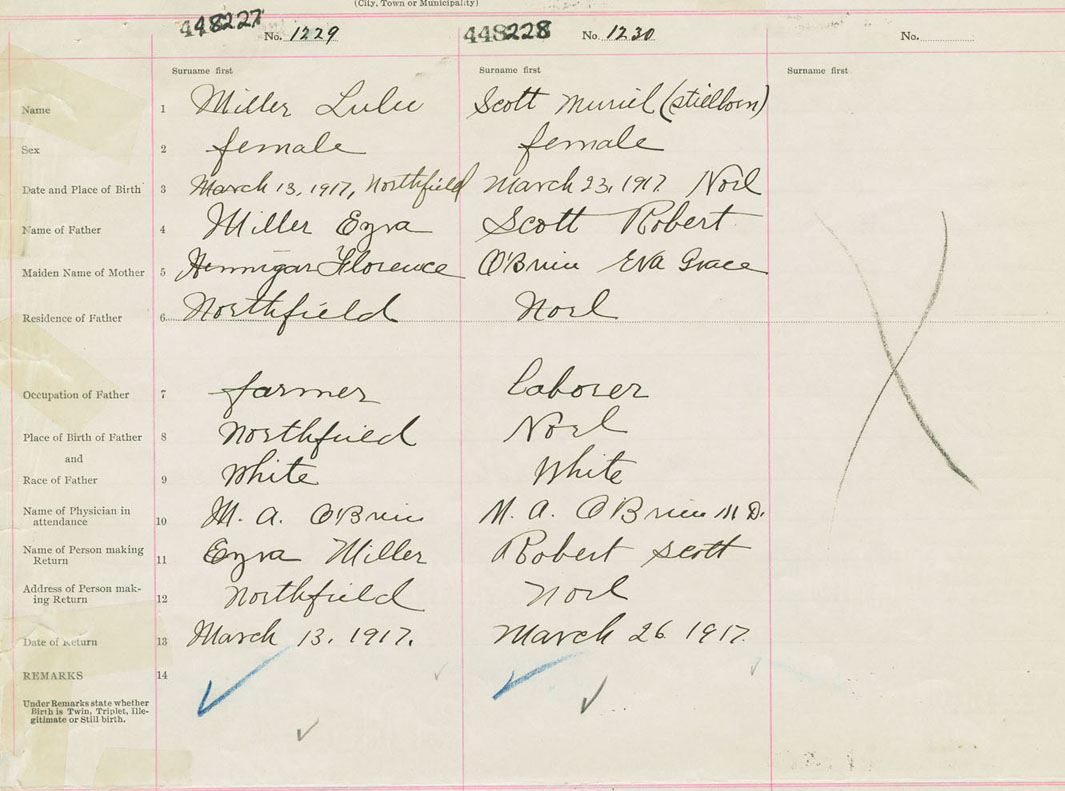 (City, Town or Municipality)
448227 No. 1229 448228 No. 1230 No.
Surname first Surname first Surname first
Name 1 Miller Lulu Scott Muriel (stillborn)
Sex 2 female female
Date and Place of Birth 3 March 13, 1917, Northfield March 23, 1917 Noel
Name of Father 4 Miller Ezra Scott Robert
Maiden Name of Mother 5 Hennigar Florence O'Brien Eva Grace
Residence of Father 6 Northfield Noel
Occupation of Father 7 farmer laborer
Place of Birth of Father 8 Northfield Noel
and
Race of Father 9 White White
Name of Physician in
attendance 10 M. A. O'Brien M. A. O'Brien M D.
Name of Person making
Return 11 Ezra Miller Robert Scott
Address of Person mak-
ing Return 12 Northfield Noel
Date of Return 13 March 13, 1917. March 26 1917.
REMARKS 14
Under Remarks state whether
Birth is Twin, Triplet, Ille-
gitimate or Still birth.